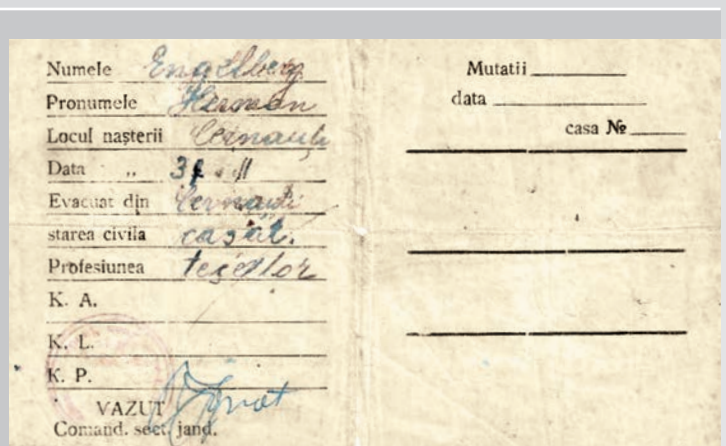 Numele Engelberg
Pronumele Herman
Locul nașterii Cernauți
Data „
Evacuat din Cernauți
starea civila casat.
Profesiunea
K. A.
K. L.
K. P.
VAZUT
Comand. sect. jand.
Mutatii
data
casa №